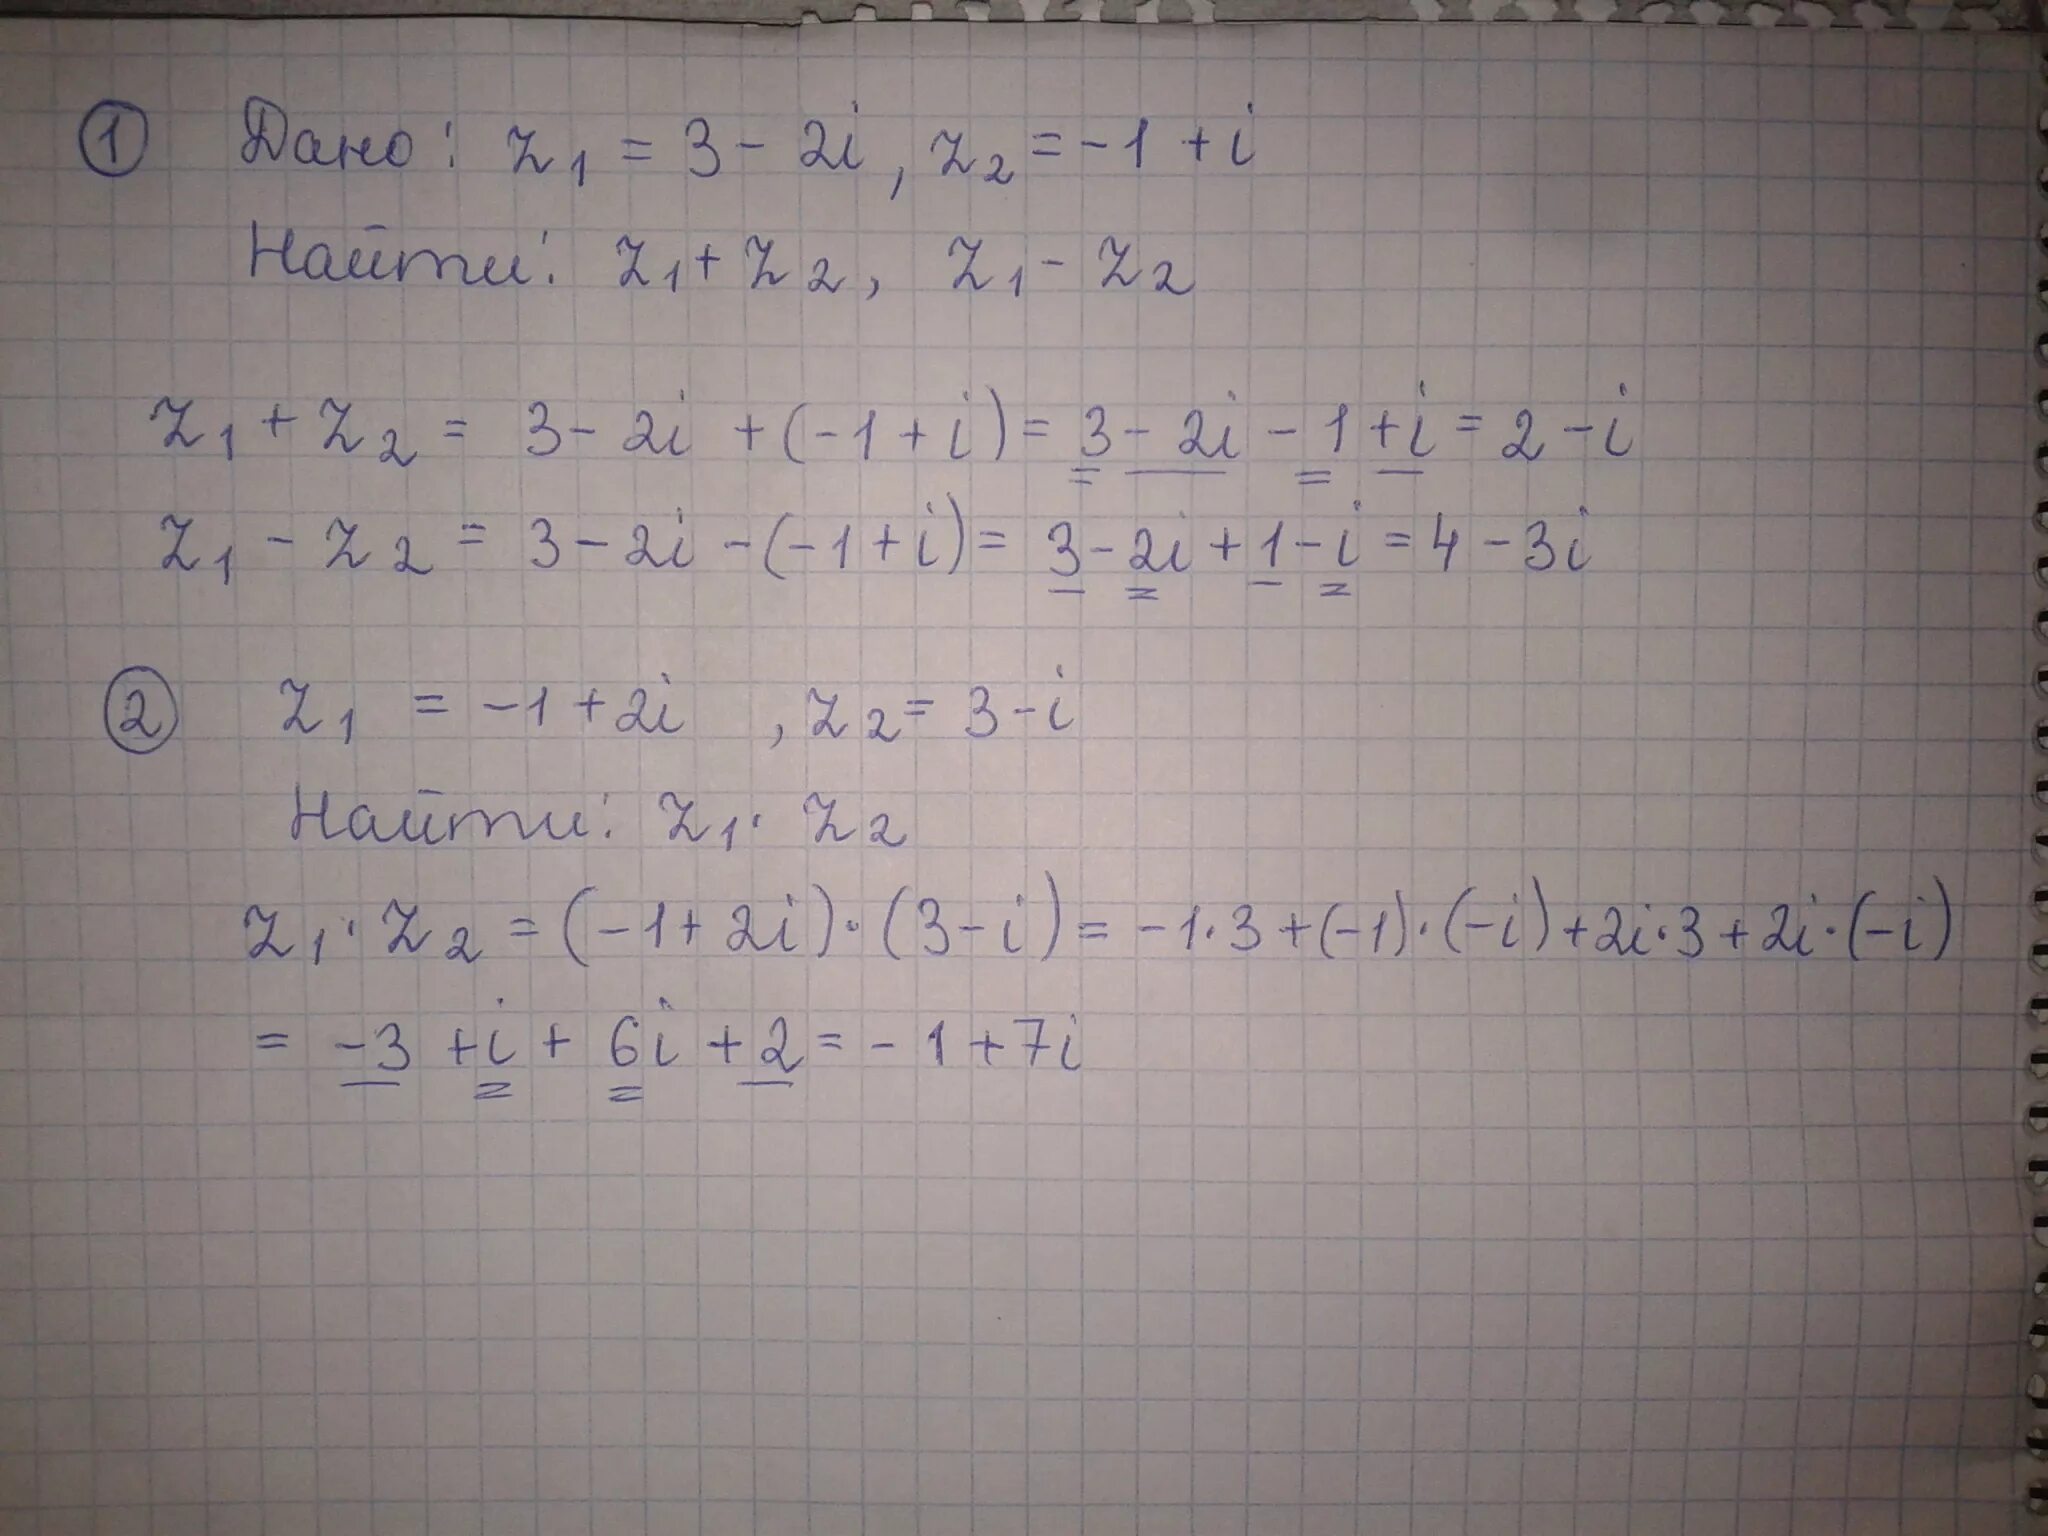 1 Дано: z1 = 3 - 2i, z2 = -1 + i
Найти: z1 + z2, z1 - z2
z1 + z2 = 3 - 2i + (-1 + i) = 3 - 2i - 1 + i = 2 - i
z1 - z2 = 3 - 2i - (-1 + i) = 3 - 2i + 1 - i = 4 - 3i
2 z1 = -1 + 2i , z2 = 3 - i
Найти: z1 · z2
z1 · z2 = (-1 + 2i) · (3 - i) = -1 · 3 + (-1) · (-i) + 2i · 3 + 2i · (-i)
= -3 + i + 6i + 2 = -1 + 7i